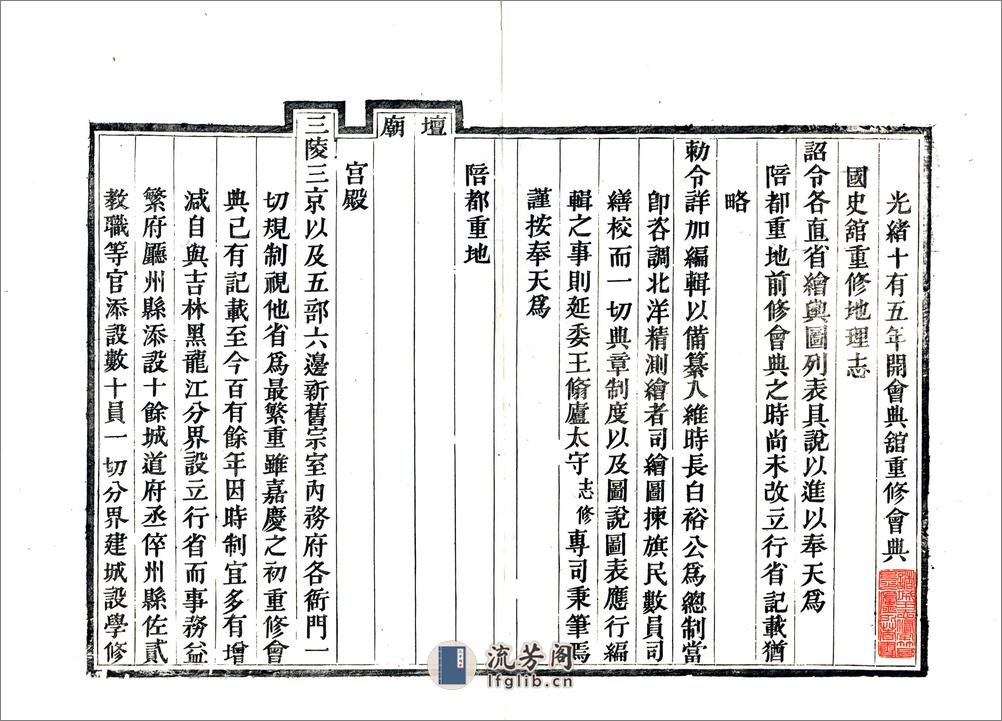 光緒十有五年開會典舘重修會典
國史舘重修地理志
詔令各直省繪輿圖列表具說以進以奉天爲
陪都重地前修會典之時尚未改立行省記載猶
略
勅令詳加編輯以備纂入維時長白裕公爲總制當
卽咨調北洋精測繪者司繪圖揀旗民數員司
繕校而一切典章制度以及圖說圖表應行編
輯之事則延委王脩廬太守志修專司秉筆焉
謹按奉天爲
陪都重地
壇
廟
宮殿
三陵三京以及五部六邊新舊宗室內務府各衙門一
切規制視他省爲最繁重雖嘉慶之初重修會
典已有記載至今百有餘年因時制宜多有增
減自與吉林黑龍江分界設立行省而事務益
繁府廳州縣添設十餘城道府丞倅州縣佐貳
教職等官添設數十員一切分界建城設學修
流芳阁
lfglib.cn